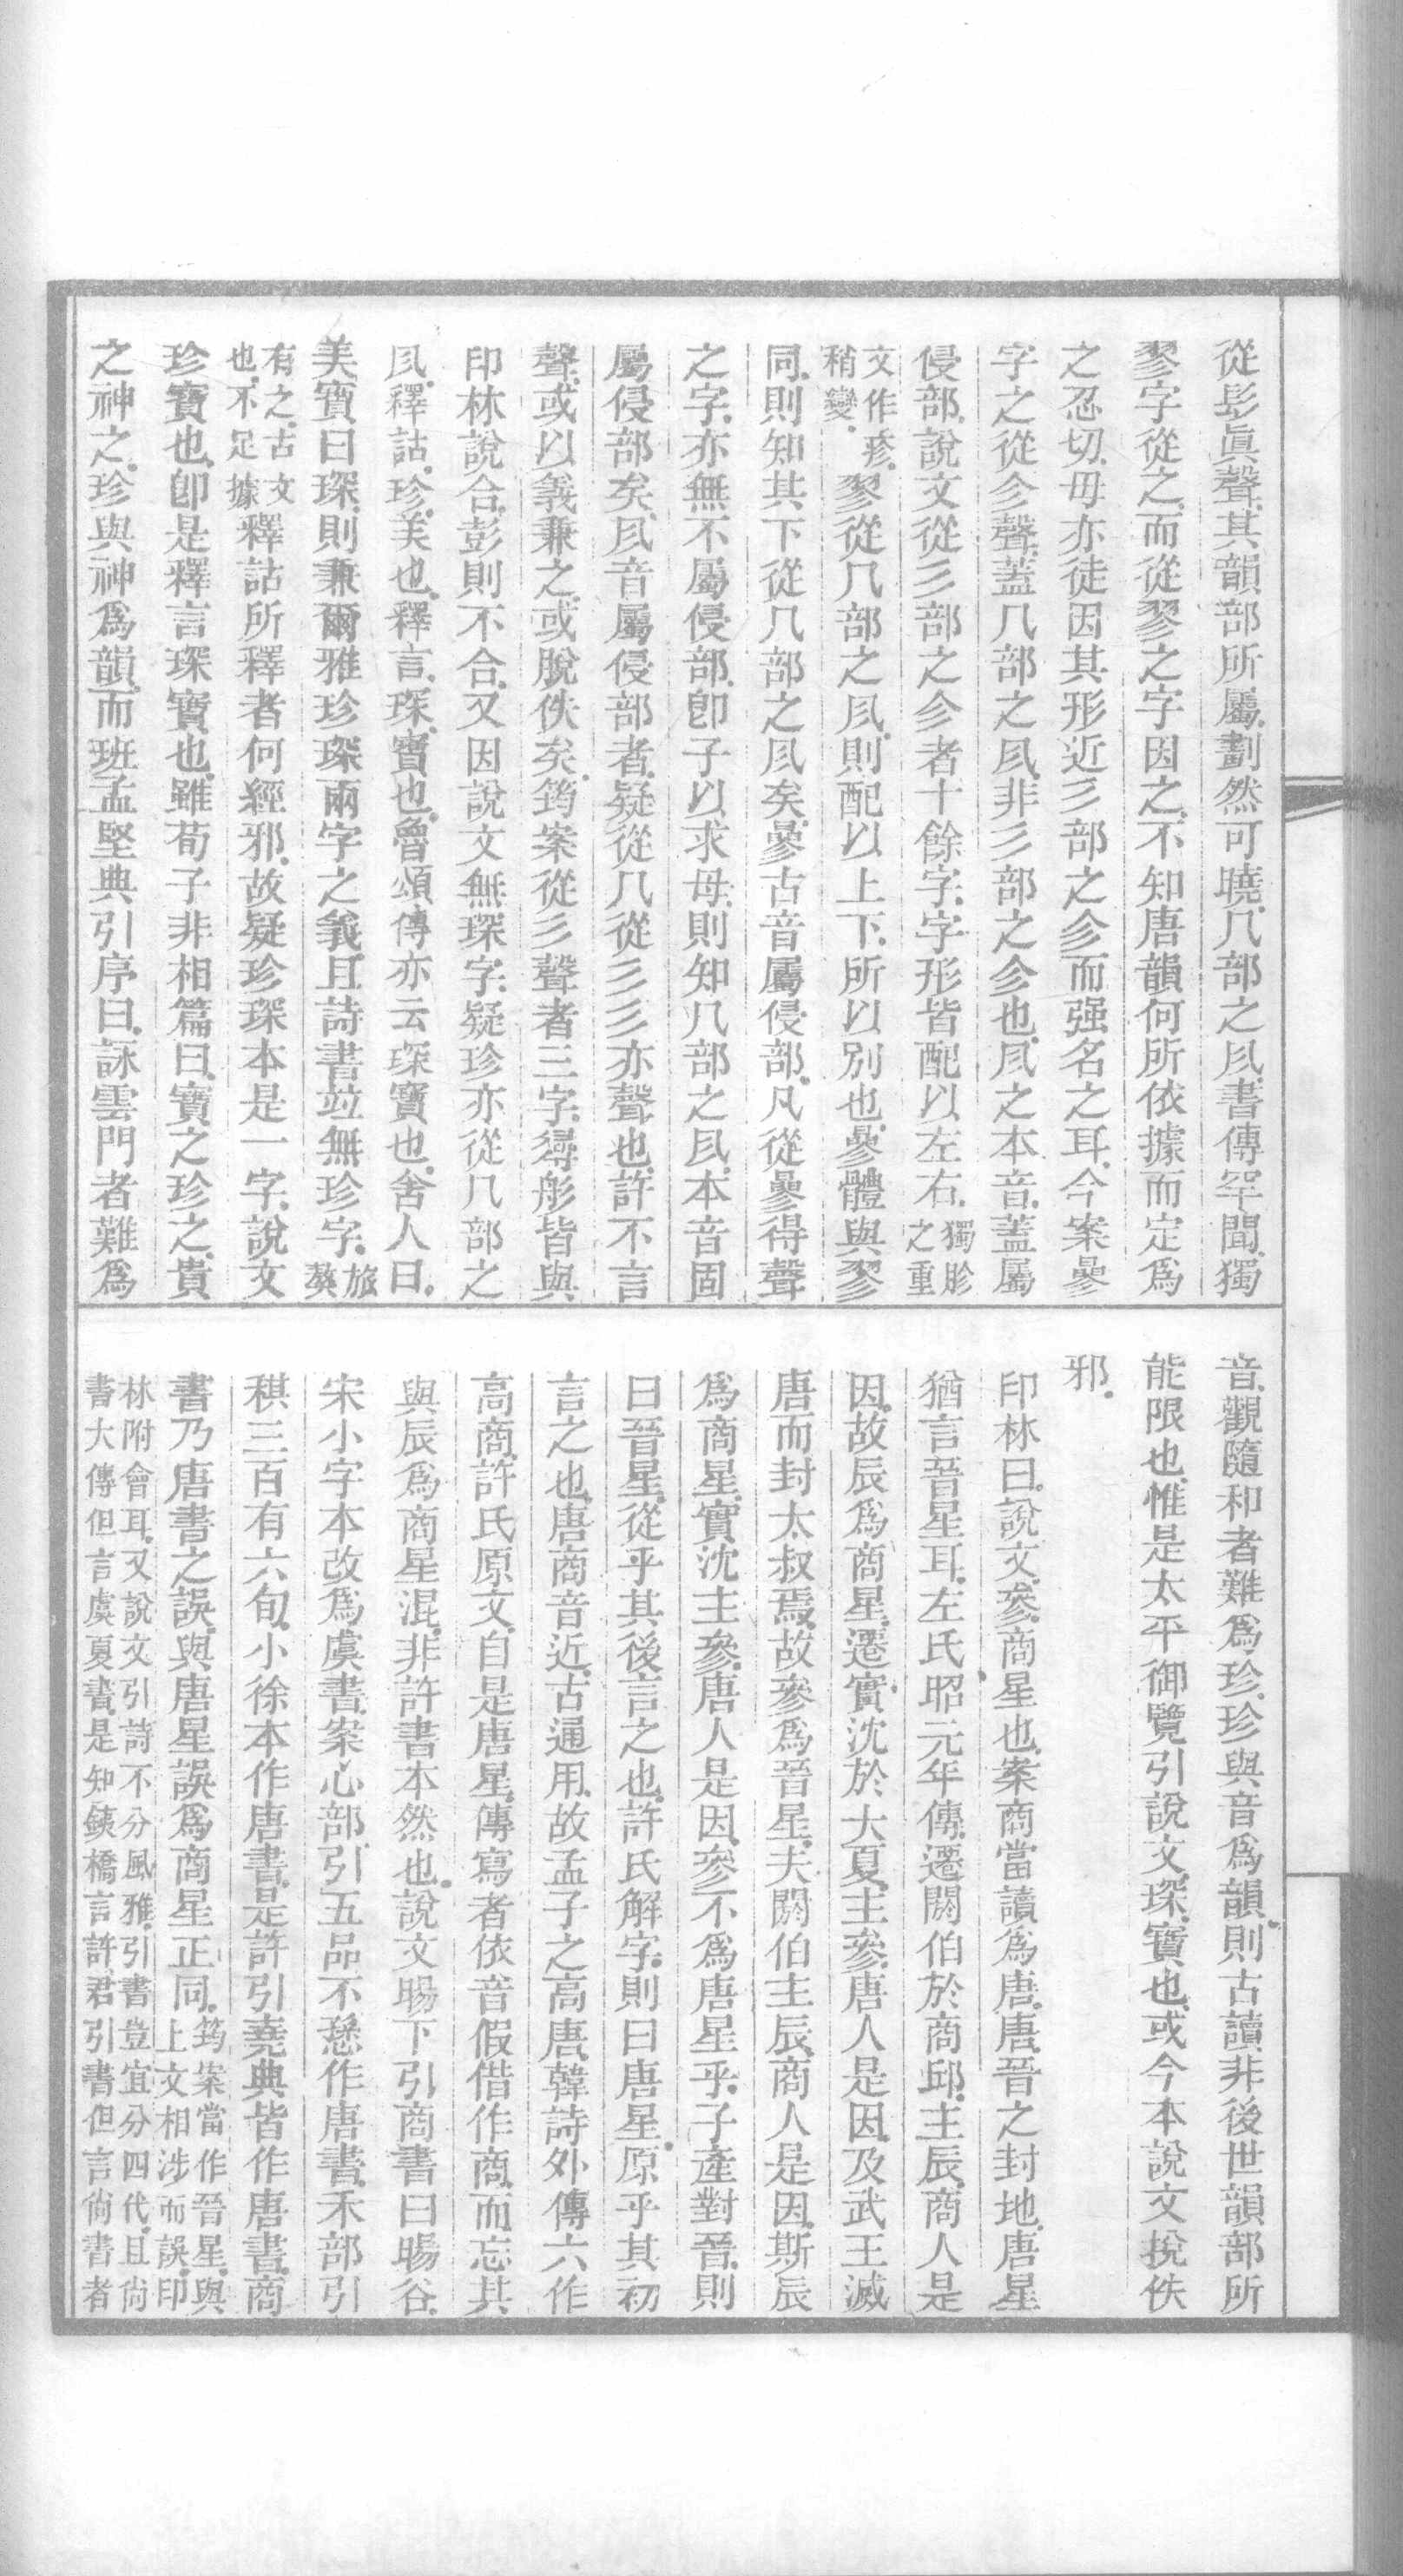 從髟眞聲其韻部所屬劃然可曉几部之㐱書傳罕聞獨
翏字從之而從翏之字因之不知唐韻何所依據而定爲
之忍切毋亦徒因其形近彡部之㐱而强名之耳今案曑
字之從㐱聲蓋几部之㐱非彡部之㐱也㐱之本音蓋屬
侵部說文從彡部之㐱者十餘字字形皆配以左右獨胗之重
文作疹稍變翏從几部之㐱則配以上下所以別也曑體與翏
同則知其下從几部之㐱矣曑古音屬侵部凡從曑得聲
之字亦無不屬侵部卽子以求母則知几部之㐱本音固
屬侵部矣㐱音屬侵部者疑從几從彡彡亦聲也許不言
聲或以義兼之或脫佚矣筠案從彡聲者三字尋彤皆與
印林說合彭則不合又因說文無琛字疑珍亦從几部之
㐱釋詁珍美也釋言琛寶也魯頌傳亦云琛寶也舍人曰
美寶曰琛則兼爾雅珍琛兩字之義且詩書竝無珍字旅獒
有之古文也不足據釋詁所釋者何經邪故疑珍琛本是一字說文
珍寶也卽是釋言琛寶也雖荀子非相篇曰寶之珍之貴
之神之珍與神爲韻而班孟堅典引序曰詠雲門者難爲
音觀隨和者難爲珍珍與音爲韻則古讀非後世韻部所
能限也惟是太平御覽引說文琛寶也或今本說文挩佚
邪
印林曰說文曑商星也案商當讀爲唐唐晉之封地唐星
猶言晉星耳左氏昭元年傳遷閼伯於商邱主辰商人是
因故辰爲商星遷實沈於大夏主參唐人是因及武王滅
唐而封太叔焉故參爲晉星夫閼伯主辰商人是因斯辰
爲商星實沈主參唐人是因參不爲唐星乎子產對晉則
曰晉星從乎其後言之也許氏解字則曰唐星原乎其初
言之也唐商音近古通用故孟子之高唐韓詩外傳六作
高商許氏原文自是唐星傳寫者依音假借作商而忘其
與辰爲商星混非許書本然也說文暘下引商書曰暘谷
宋小字本改爲虞書案心部引五品不愻作唐書禾部引
稘三百有六旬小徐本作唐書是許引堯典皆作唐書商
書乃唐書之誤與唐星誤爲商星正同筠案當作晉星與上文相涉而誤印
林附會耳又說文引詩不分風雅引書豈宜分四代且尙書大傳但言虞夏書是知鉄橋言許君引書但言尙書者